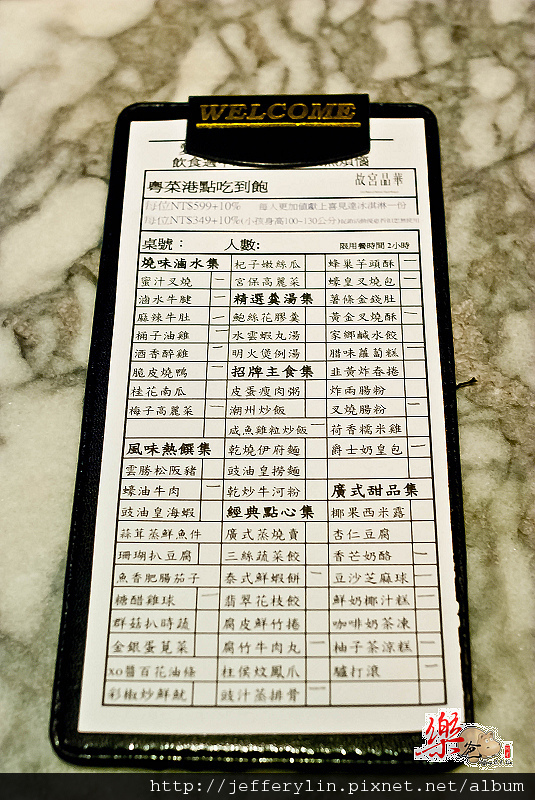 WELCOME
粵菜港點吃到飽
故宮晶華
每位NT$599+10% 每人更加值獻上喜見達冰淇淋一份
每位NT$349+10%(小孩身高100~130公分)
桌號： 人數: 限用餐時間 2小時
燒味滷水集
蜜汁叉燒 一
滷水牛腱 一
麻辣牛肚 一
桶子油雞 一
酒香醉雞 一
脆皮燒鴨 一
桂花南瓜
梅子高麗菜 一
風味熱饌集
雲勝松阪豬
蠔油牛肉 一
豉油皇海蝦
蒜茸蒸鮮魚件
珊瑚扒豆腐
魚香肥腸茄子
糖醋雞球 一
群菇扒時蔬
金銀蛋莧菜
xo醬百花油條
彩椒炒鮮魷
杞子嫩絲瓜
宮保高麗菜
精選羹湯集
鮑絲花膠羹
水雲蝦丸湯
明火煲例湯
招牌主食集
皮蛋瘦肉粥
潮州炒飯
咸魚雞粒炒飯 一
乾燒伊府麵
豉油皇撈麵
乾炒牛河粉
經典點心集
廣式蒸燒賣
三絲蔬菜餃
泰式鮮蝦餅 一
翡翠花枝餃
腐皮鮮竹捲
腐竹牛肉丸 一
柱侯炆鳳爪
豉汁蒸排骨 一
蜂巢芋頭酥 一
蠔皇叉燒包 一
薯條金錢肚
黃金叉燒酥 一
家鄉鹹水餃
腊味蘿蔔糕 一
韭黃炸春捲
炸兩腸粉
叉燒腸粉 一
荷香糯米雞
爵士奶皇包 一
廣式甜品集
椰果西米露
杏仁豆腐
香芒奶酪 一
豆沙芝麻球 一
鮮奶椰汁糕 一
咖啡奶茶凍 一
柚子茶涼糕 一
驢打滾 一
樂爸
http://jefferylin.pixnet.net/album